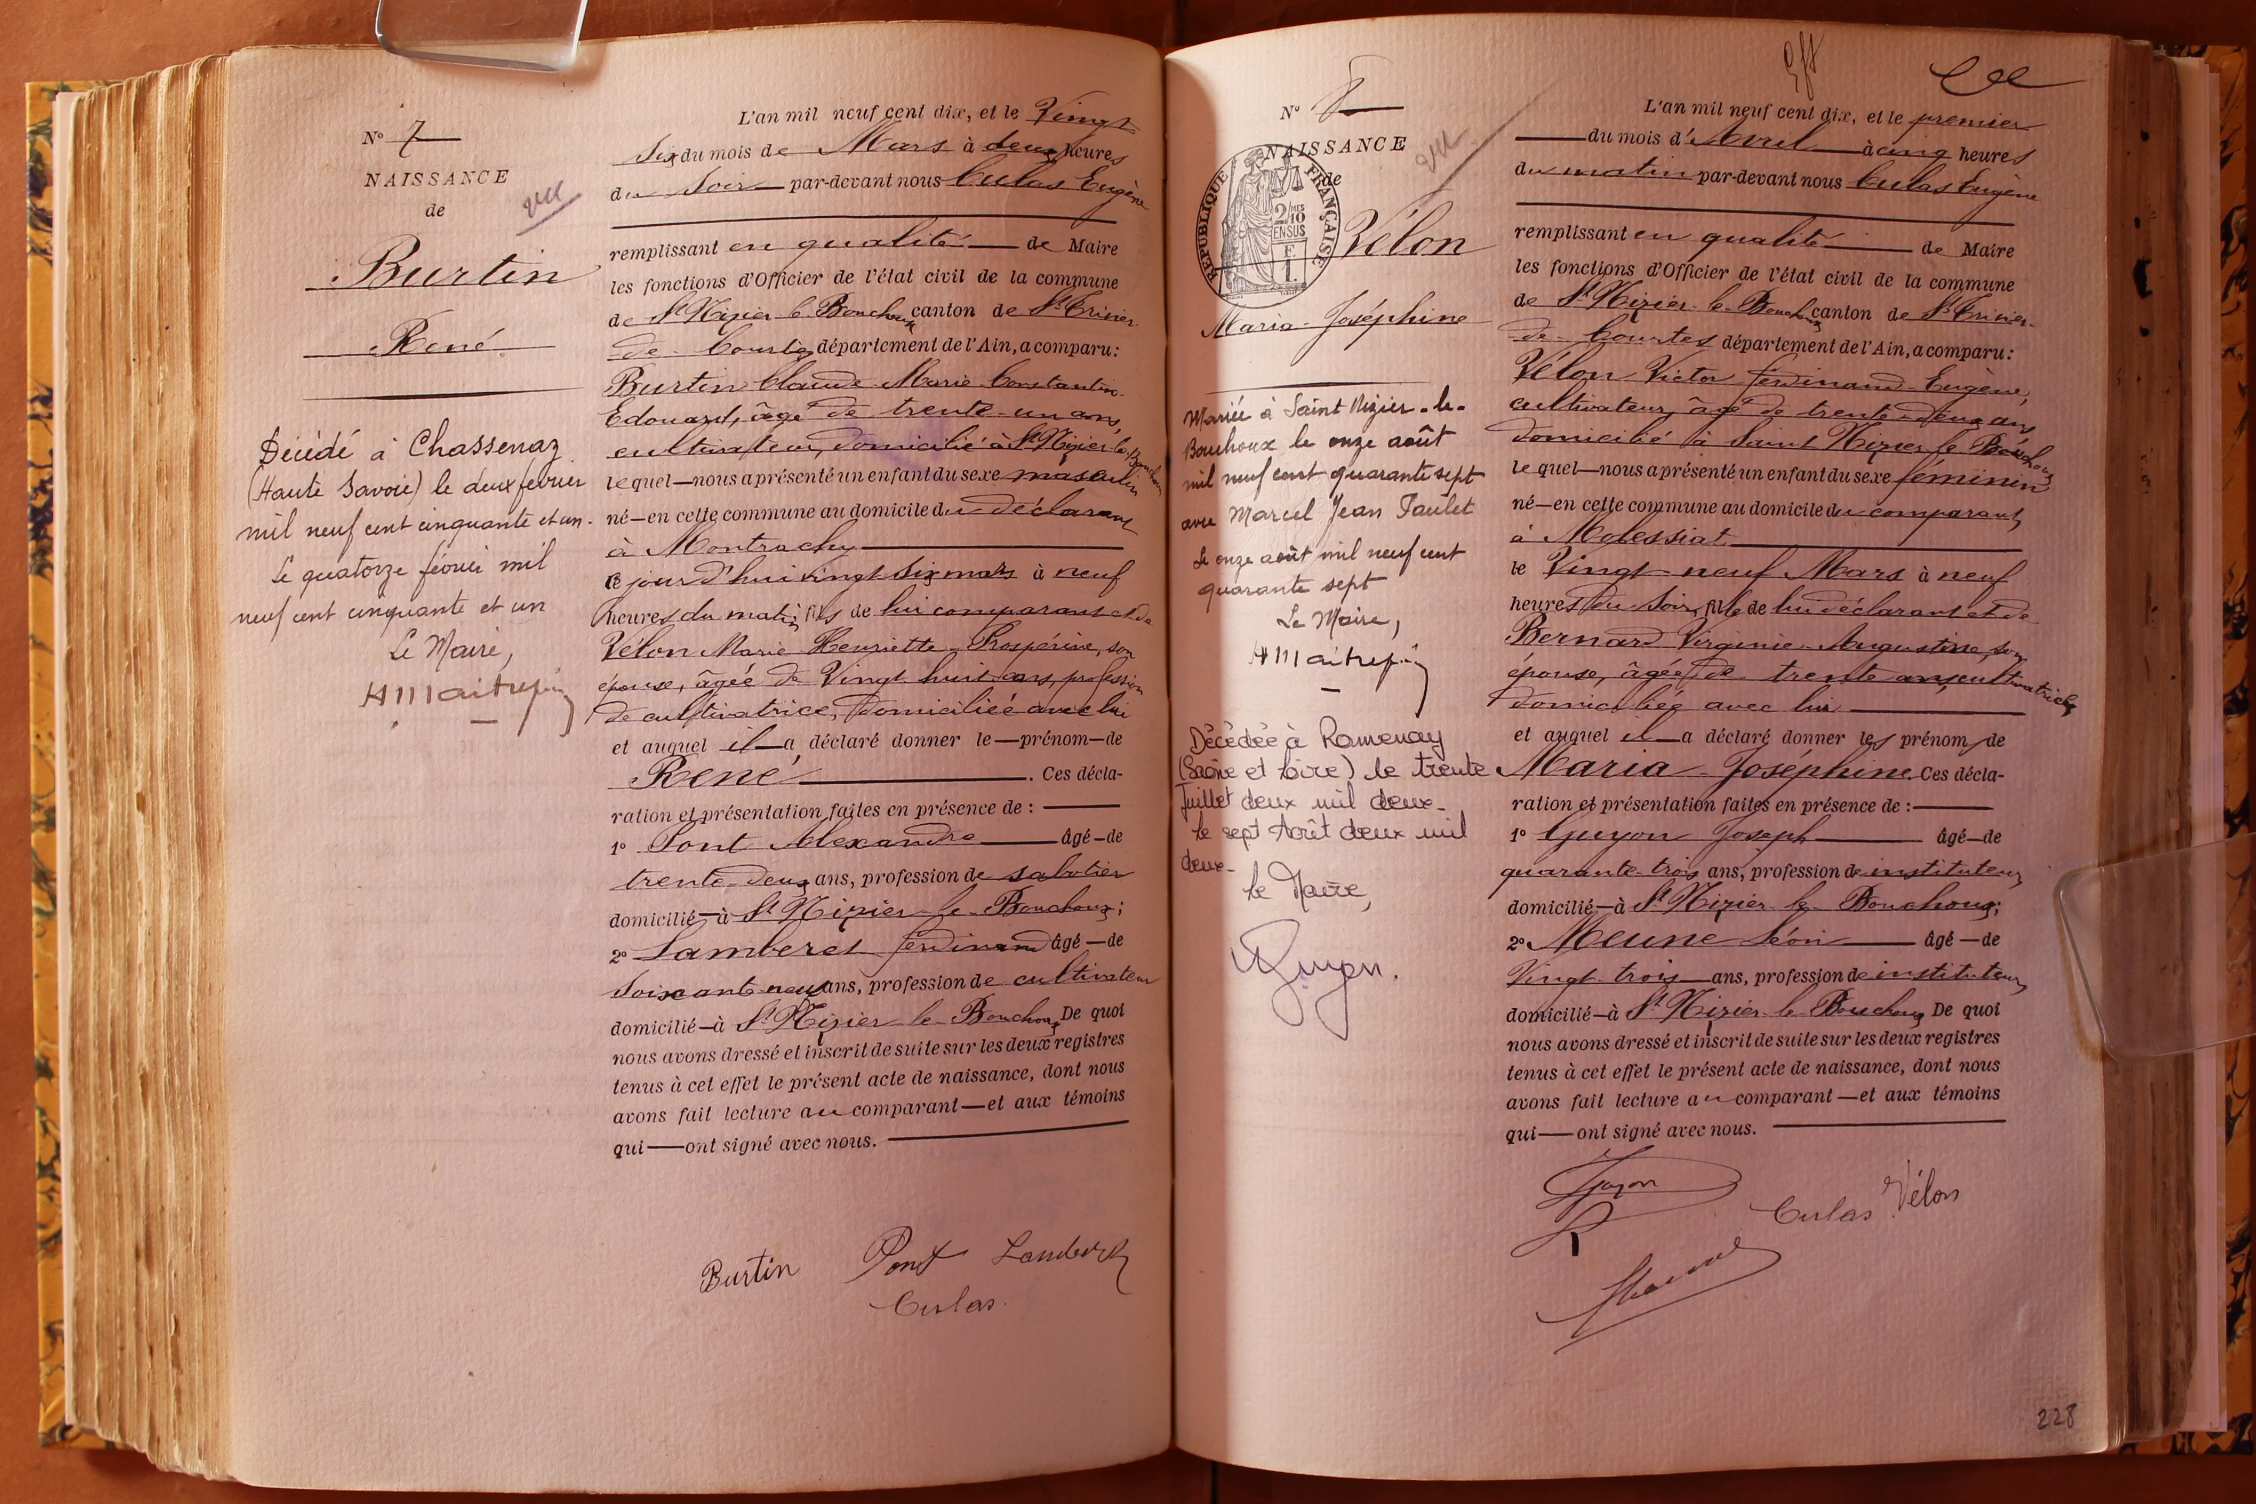 N° 7
NAISSANCE
de
vu
Burtin
René
Décédé à Chassenaz
(Haute Savoie) le deux février
mil neuf cent cinquante et un.
Le quatorze février mil
neuf cent cinquante et un
Le Maire,
L'an mil neuf cent dix, et le Vingt
Six du mois de Mars à deux heures
du Soir par-devant nous Culas Eugène
remplissant en qualité de Maire
les fonctions d'Officier de l'état civil de la commune
de St Nizier le Bouchoux canton de St Trivier
de Courtes département de l'Ain, a comparu:
Burtin Claude Marie Constantin
Edouard, âgé de trente-un ans,
cultivateur, domicilié à St Nizier-le-Bouchoux
lequel—nous a présenté un enfant du sexe masculin
né—en cette commune au domicile du déclarant
à Montrachy
ce jour d'hui vingt six mars à neuf
heures du matin fils de lui comparant et de
Vélon Marie Henriette Prospérine, son
épouse, âgée de Vingt huit ans, profession
de cultivatrice, domiciliée avec lui
et auquel il a déclaré donner le—prénom—de
René. Ces décla-
ration et présentation faites en présence de :
1° Pont Alexandre âgé—de
trente-deux ans, profession de sabotier
domicilié—à St Nizier le Bouchoux;
2° Lamberet Ferdinand âgé—de
Soixante neuf ans, profession de cultivateur
domicilié—à St Nizier le Bouchoux De quoi
nous avons dressé et inscrit de suite sur les deux registres
tenus à cet effet le présent acte de naissance, dont nous
avons fait lecture au comparant—et aux témoins
qui—ont signé avec nous.
Burtin Pont Lamberet
Culas
N° 8
NAISSANCE
de
vu
RÉPUBLIQUE FRANÇAISE
2/10 MES
EN SUS
Vélon
Maria Joséphine
Mariée à Saint Nizier-le-
Bouchoux le onze août
mil neuf cent quarante sept
avec Marcel Jean Paulet
Le onze août mil neuf cent
quarante sept
Le Maire,
Décédée à Romenay
(Saône et Loire) le trente
Juillet deux mil deux-
le sept Août deux mil
deux-
le Maire,
L'an mil neuf cent dix, et le premier
du mois d'Avril à cinq heures
du matin par-devant nous Culas Eugène
remplissant en qualité de Maire
les fonctions d'Officier de l'état civil de la commune
de St Nizier le Bouchoux canton de St Trivier
de Courtes département de l'Ain, a comparu:
Vélon Victor Ferdinand Eugène,
cultivateur, âgé de trente deux ans
domicilié à Saint Nizier le Bouchoux
lequel—nous a présenté un enfant du sexe féminin
né—en cette commune au domicile du comparant
à Molessiat
le Vingt neuf Mars à neuf
heures du Soir, fille de lui déclarant et de
Bernard Virginie Augustine, son
épouse, âgée de trente ans, cultivatrice
domiciliée avec lui
et auquel il a déclaré donner les prénoms de
Maria Joséphine. Ces décla-
ration et présentation faites en présence de :
1° Guyon Joseph âgé—de
quarante-trois ans, profession de instituteur
domicilié—à St Nizier le Bouchoux;
2° Meune Léon âgé—de
Vingt trois ans, profession de instituteur
domicilié—à St Nizier le Bouchoux De quoi
nous avons dressé et inscrit de suite sur les deux registres
tenus à cet effet le présent acte de naissance, dont nous
avons fait lecture au comparant—et aux témoins
qui—ont signé avec nous.
Guyon
Culas Vélon
228